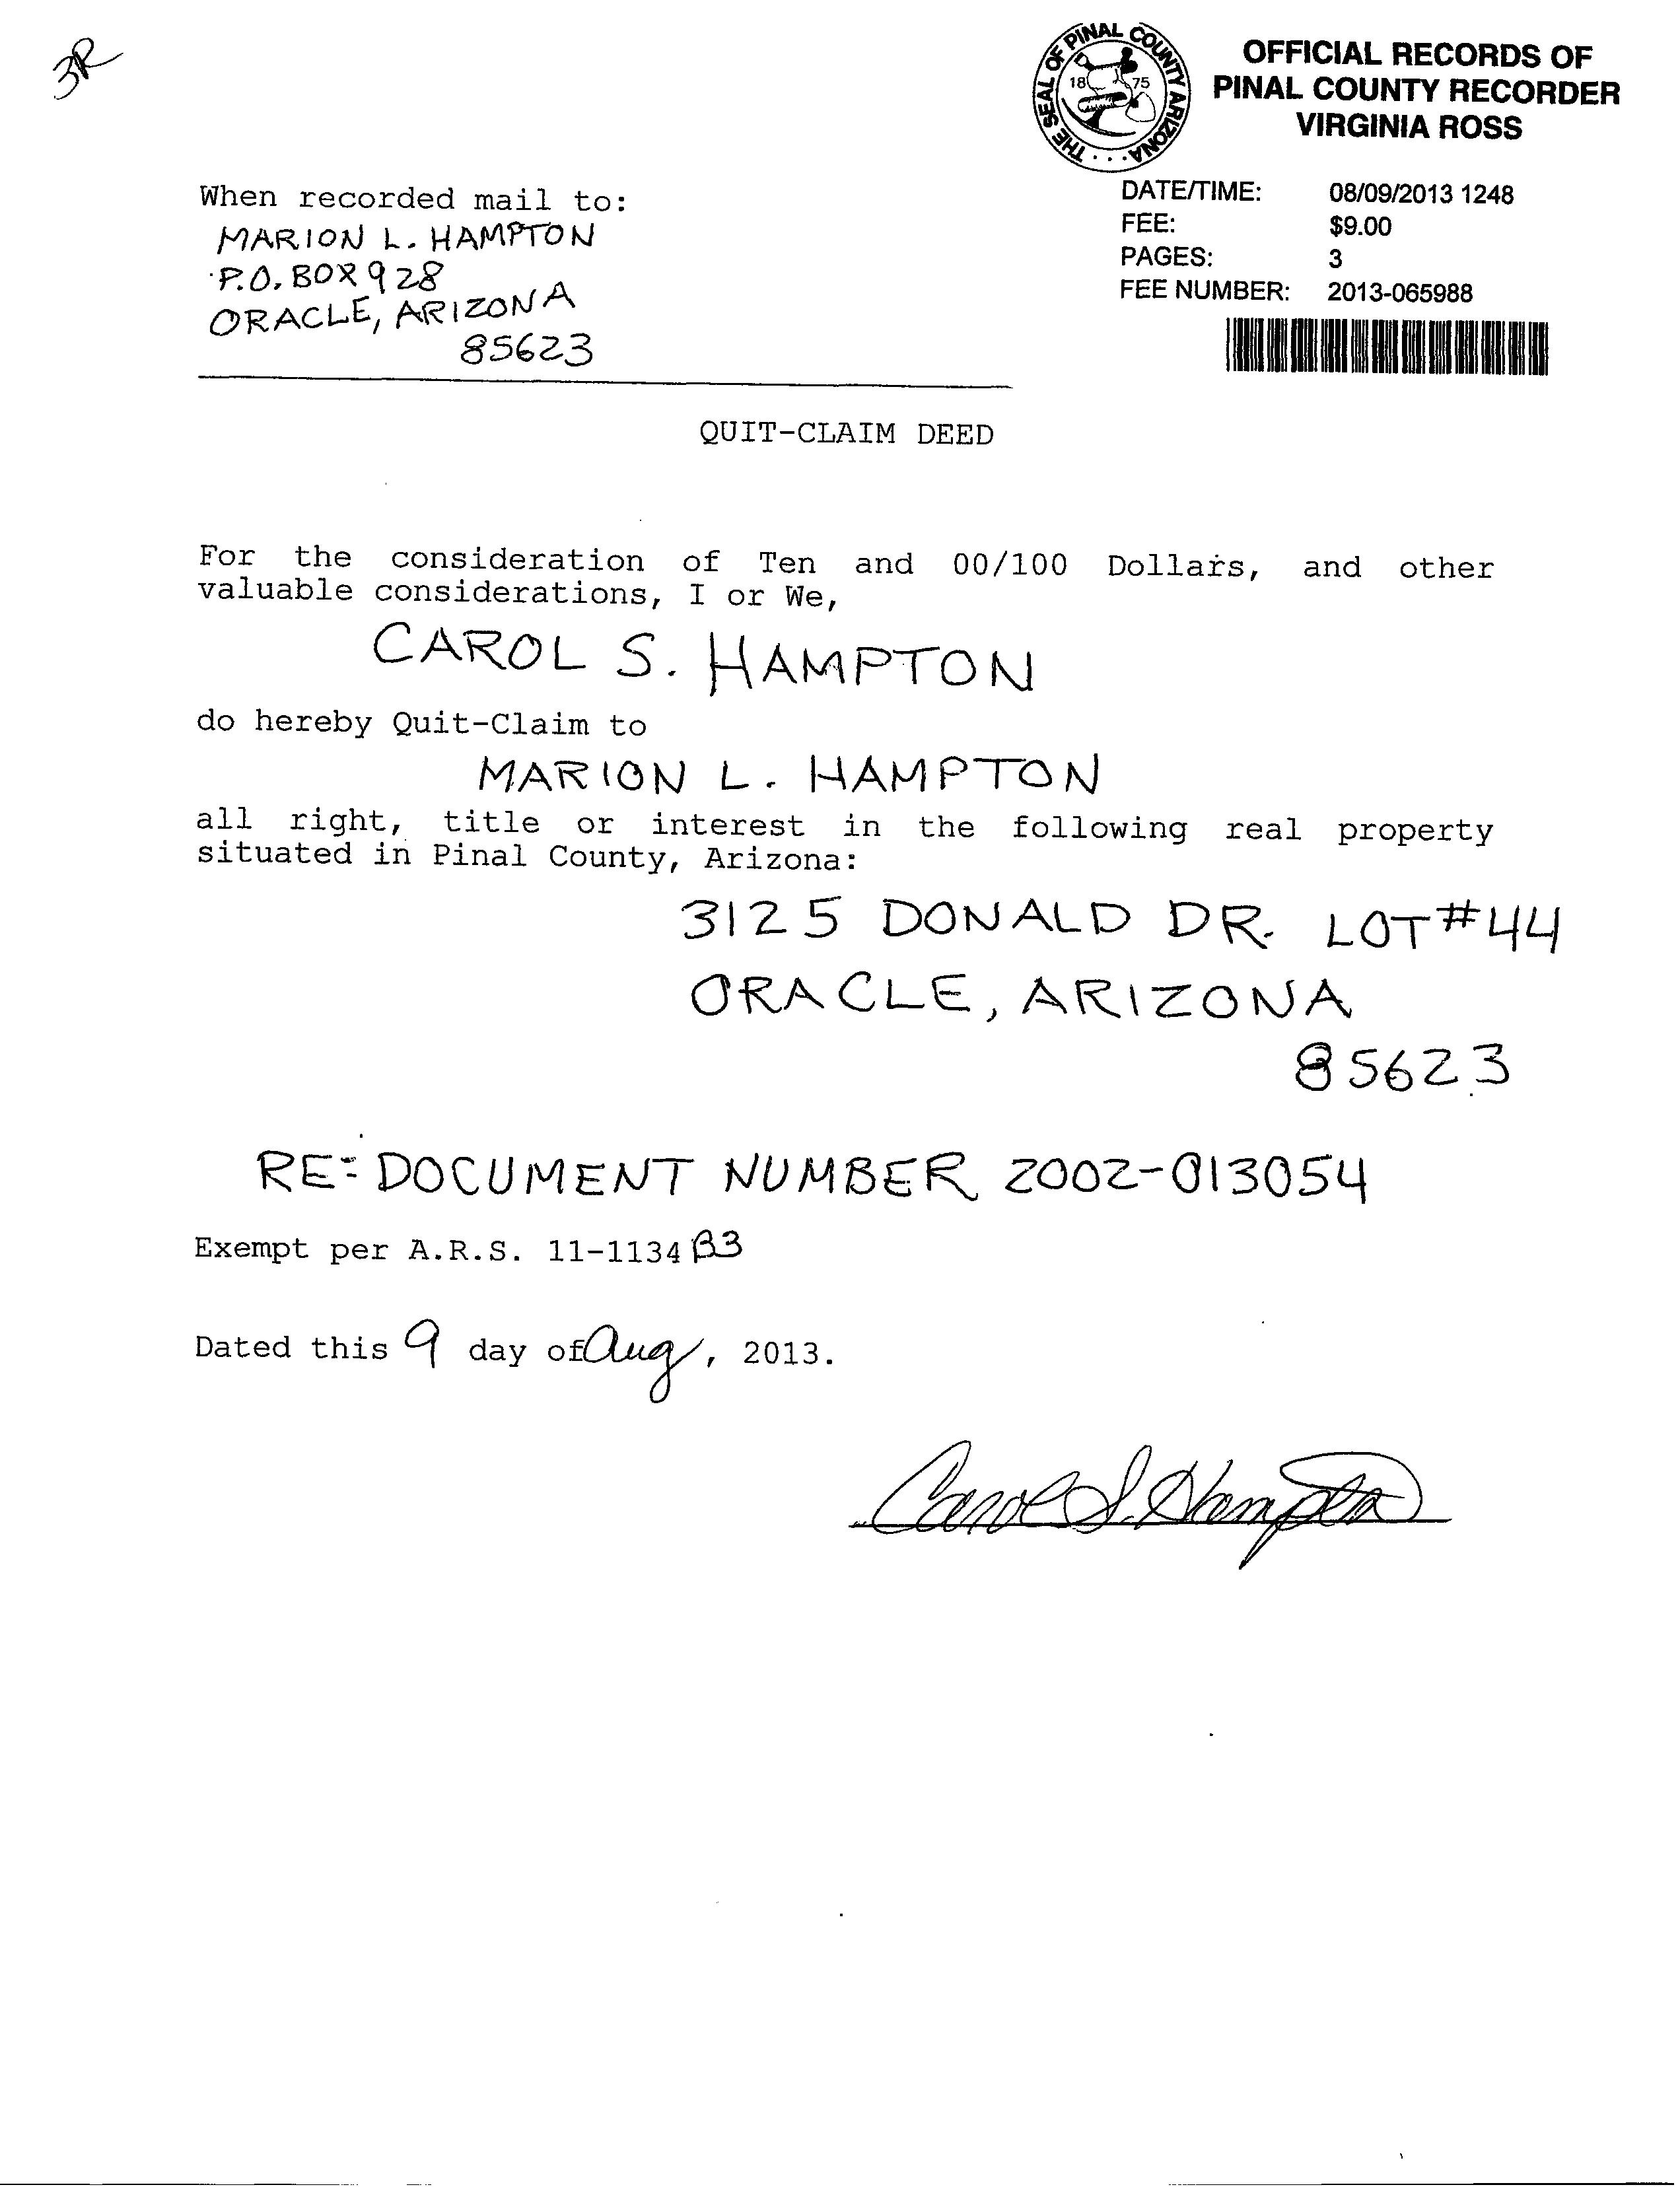 3R
THE SEAL OF PINAL COUNTY ARIZONA
18 75
OFFICIAL RECORDS OF
PINAL COUNTY RECORDER
VIRGINIA ROSS
DATE/TIME: 08/09/2013 1248
FEE: $9.00
PAGES: 3
FEE NUMBER: 2013-065988
When recorded mail to:
MARION L. HAMPTON
P.O. BOX 928
ORACLE, ARIZONA
85623
QUIT-CLAIM DEED
For the consideration of Ten and 00/100 Dollars, and other
valuable considerations, I or We,
CAROL S. HAMPTON
do hereby Quit-Claim to
MARION L. HAMPTON
all right, title or interest in the following real property
situated in Pinal County, Arizona:
3125 DONALD DR. LOT #44
ORACLE, ARIZONA
85623
RE: DOCUMENT NUMBER 2002-013054
Exempt per A.R.S. 11-1134 B3
Dated this 9 day of Aug, 2013.
Carol S. Hampton